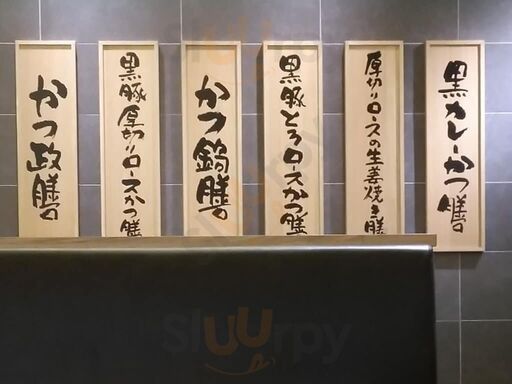 黒カレーかつ膳
厚切りロースの生姜焼き膳
黒豚とろロースかつ膳
かつ鍋膳
黒豚厚切りロースかつ膳
かつ政膳
sluurpy